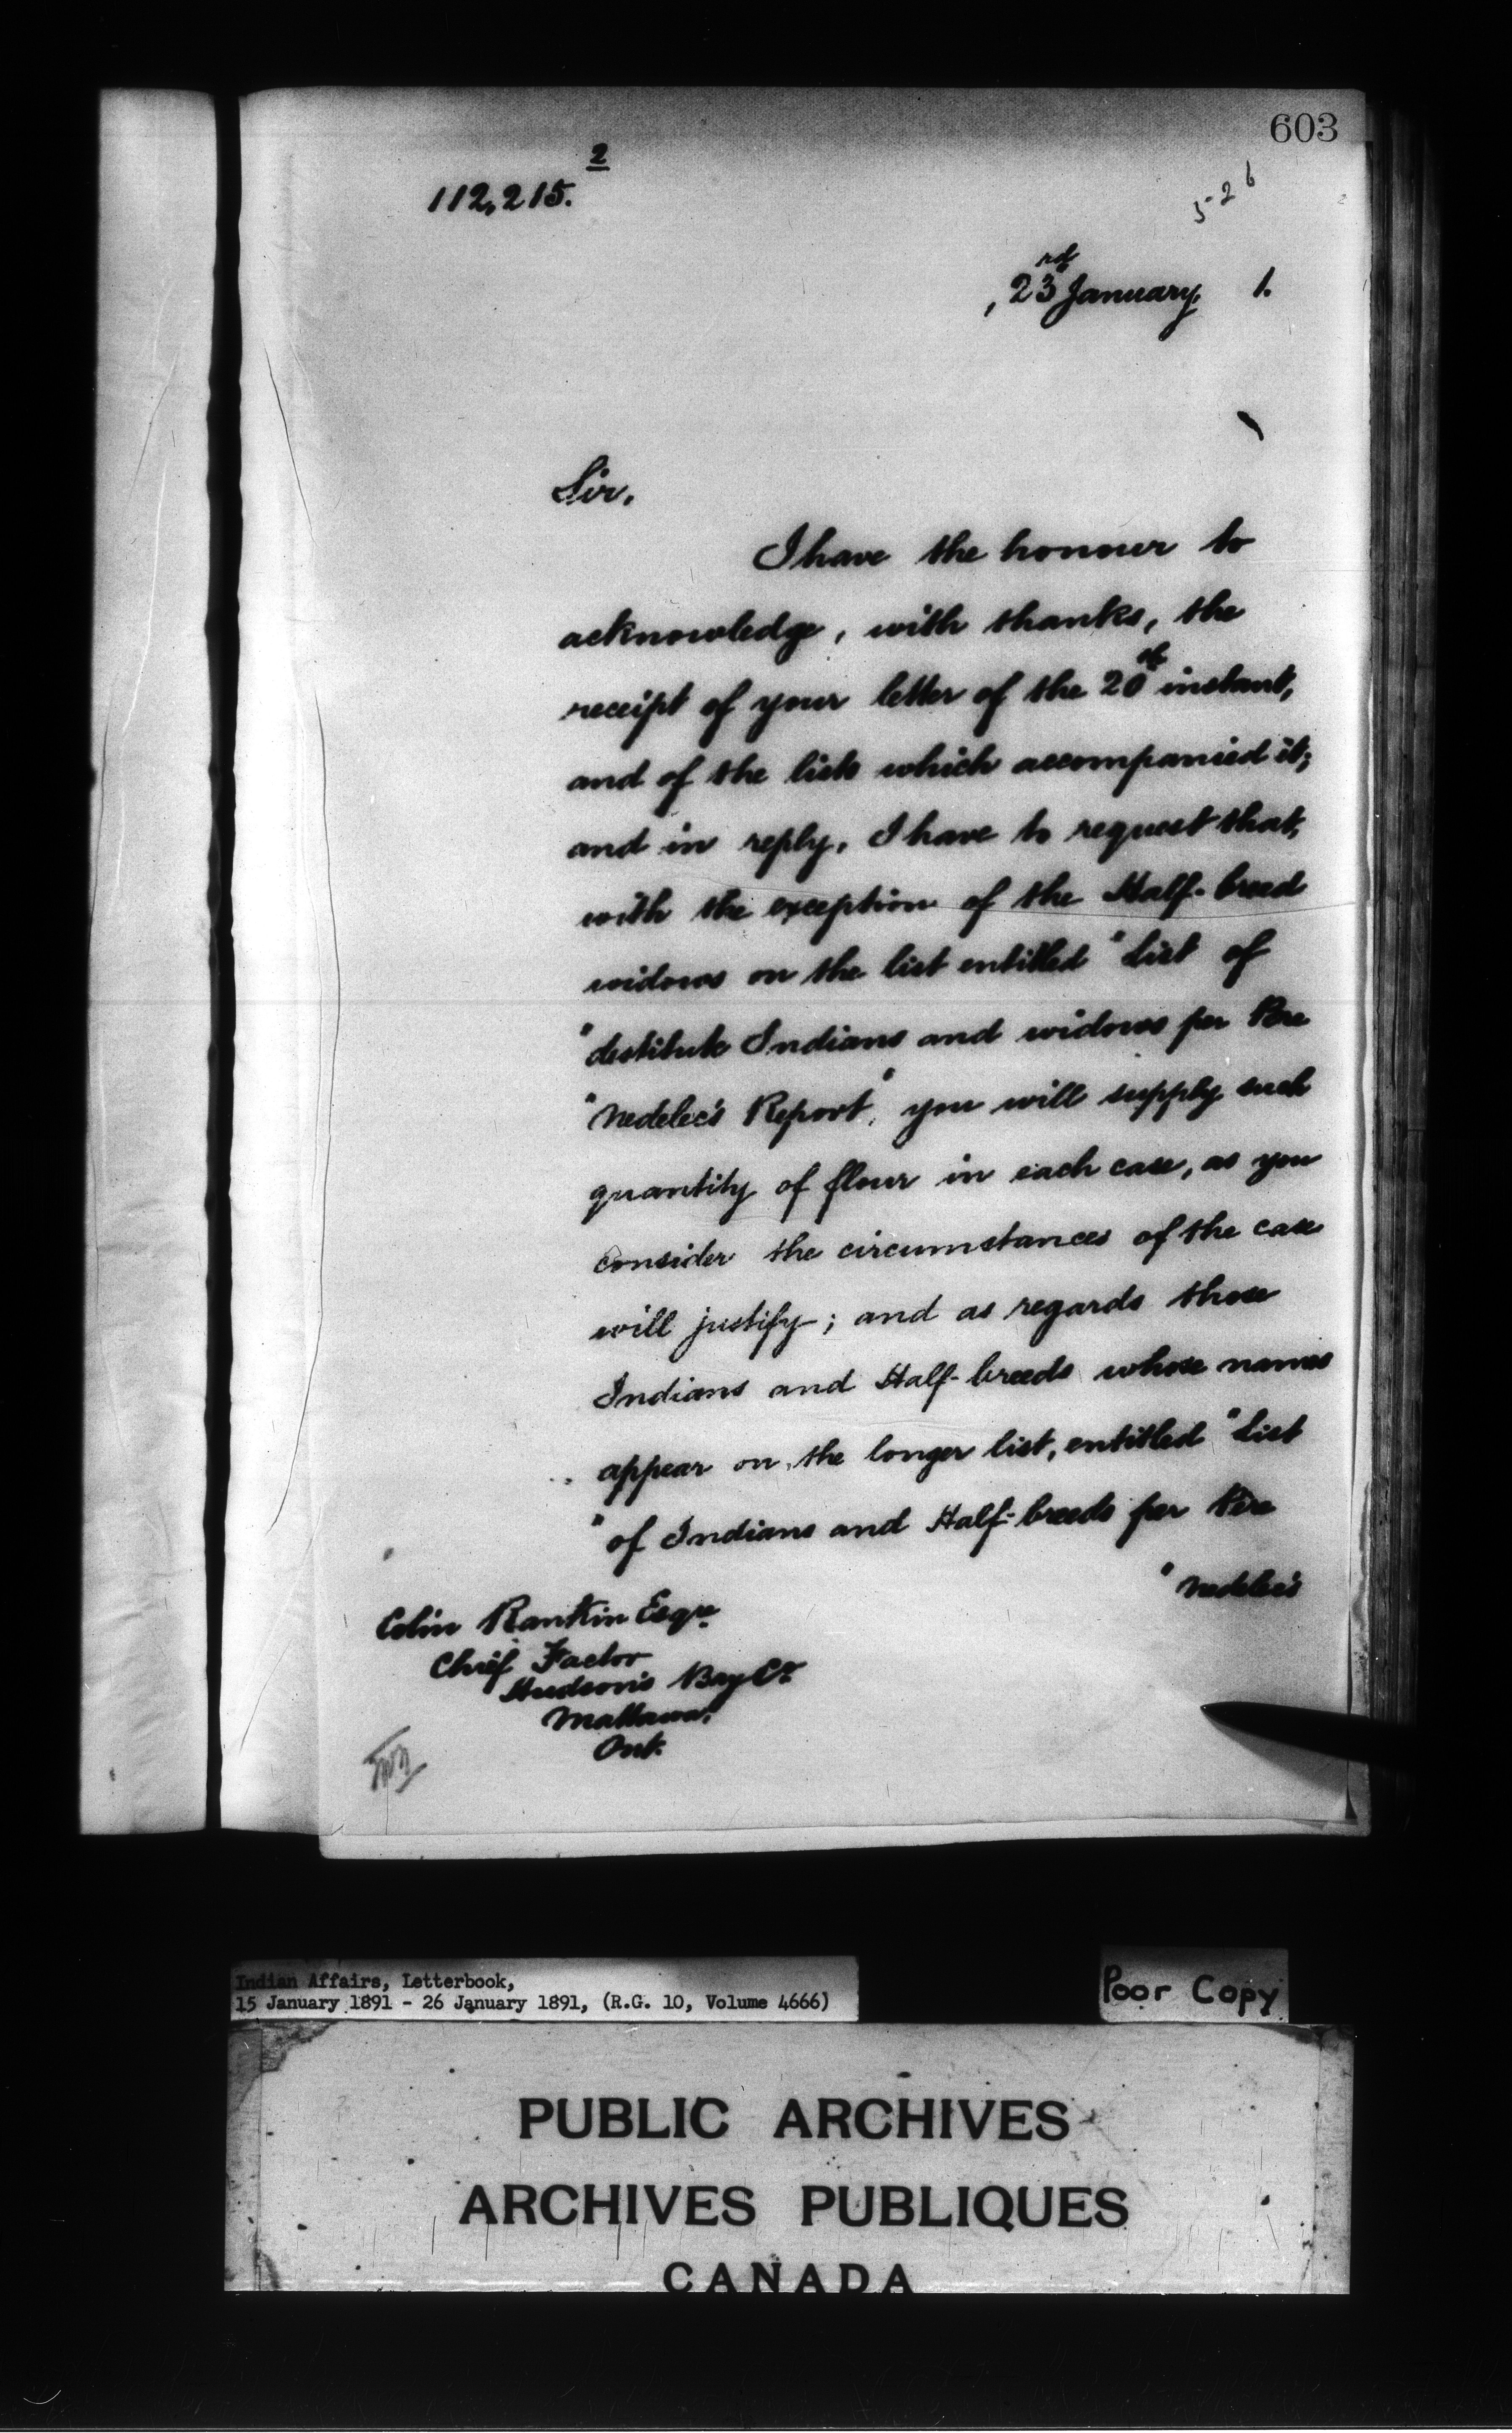 603
2
112,215.
526
, 23rd January, 1.
Sir,
I have the honour to
acknowledge, with thanks, the
receipt of your letter of the 20th instant,
and of the lists which accompanied it;
and in reply, I have to request that,
with the exception of the Half-breed
widows on the list entitled "List of
"destitute Indians and widows per Pere
"Nedelec's Report", you will supply such
quantity of flour in each case, as you
consider the circumstances of the case
will justify; and as regards those
Indians and Half-breeds whose names
appear on the longer list, entitled "List
"of Indians and Half-breeds per Pere
"Nedelec's
Colin Rankin Esqre
Chief Factor
Hudson's Bay Co.
Mattawa,
Ont.
Indian Affairs, Letterbook,
15 January 1891 - 26 January 1891, (R.G. 10, Volume 4666)
Poor Copy
PUBLIC ARCHIVES
ARCHIVES PUBLIQUES
CANADA